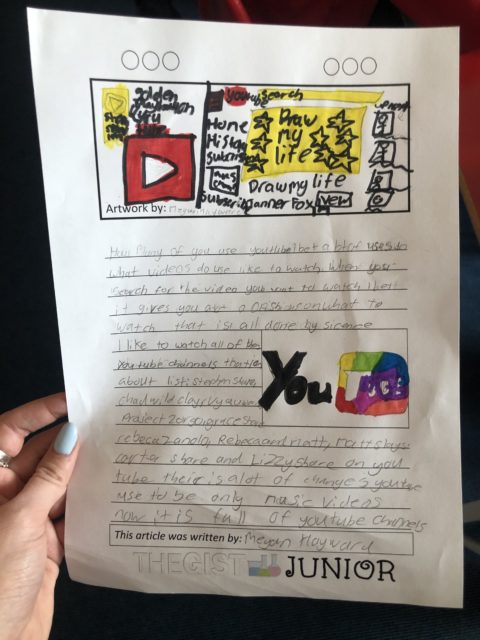 golden
you
tube
youtube search
Home
Draw
my
life
Draw my life
new
Artwork by: Megan
How Many of you use youtube i bet a lot of use
what videos do use like to watch. When you
search for the video you want to watch
it gives you on what to
watch that is all done by
I like to watch all of the
youtube channels that
about list: stephen share,
chad wild clay, vy qwaint
Project Zorgo, grace share
rebeca zamolo, Rebecca and matt, matt slays
carter share and Lizzy share on you
tube their is alot of changes youtube
use to be only music videos
now it is full of youtube channels
You
Tube
This article was written by: Megan Hayward
THEGIST JUNIOR